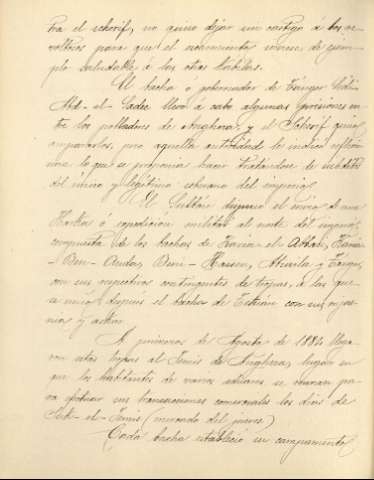 tra el scherif, no quiso dejar sin castigo á los re-
voltosos para que el escarmiento sirviese de ejem-
plo saludable á las otras kabilas.
El bacha o gobernador de Tánger Sidi-
Abd-el-Sadec llevó á cabo algunas prisiones en-
tre los pobladores de Anghera, y el Scherif quiso
ampararlos, pero aquella autoridad le indicó
lo que se proponia hacer tratandose de subditos
del único y legítimo soberano del imperio.
El Sultán dispuso el envio de una
Harka ó expedición militar al norte del imperio,
compuesta de los bachas de el Arbai,
-Ben-Auda, Beni-Hassen, y Tánger,
con sus respectivos contingentes de tropas, á los que
se unió despues el bacha de Tetuán con su
y
A primeros de Agosto de 1884 llega-
ron estas tropas al Jemis de Anghera, lugar en
que los habitantes de varios aduares se reunian pa-
ra efectuar sus transacciones comerciales los dias de
Sok-el-Jemis (mercado del jueves)
Cada bacha estableció su campamento